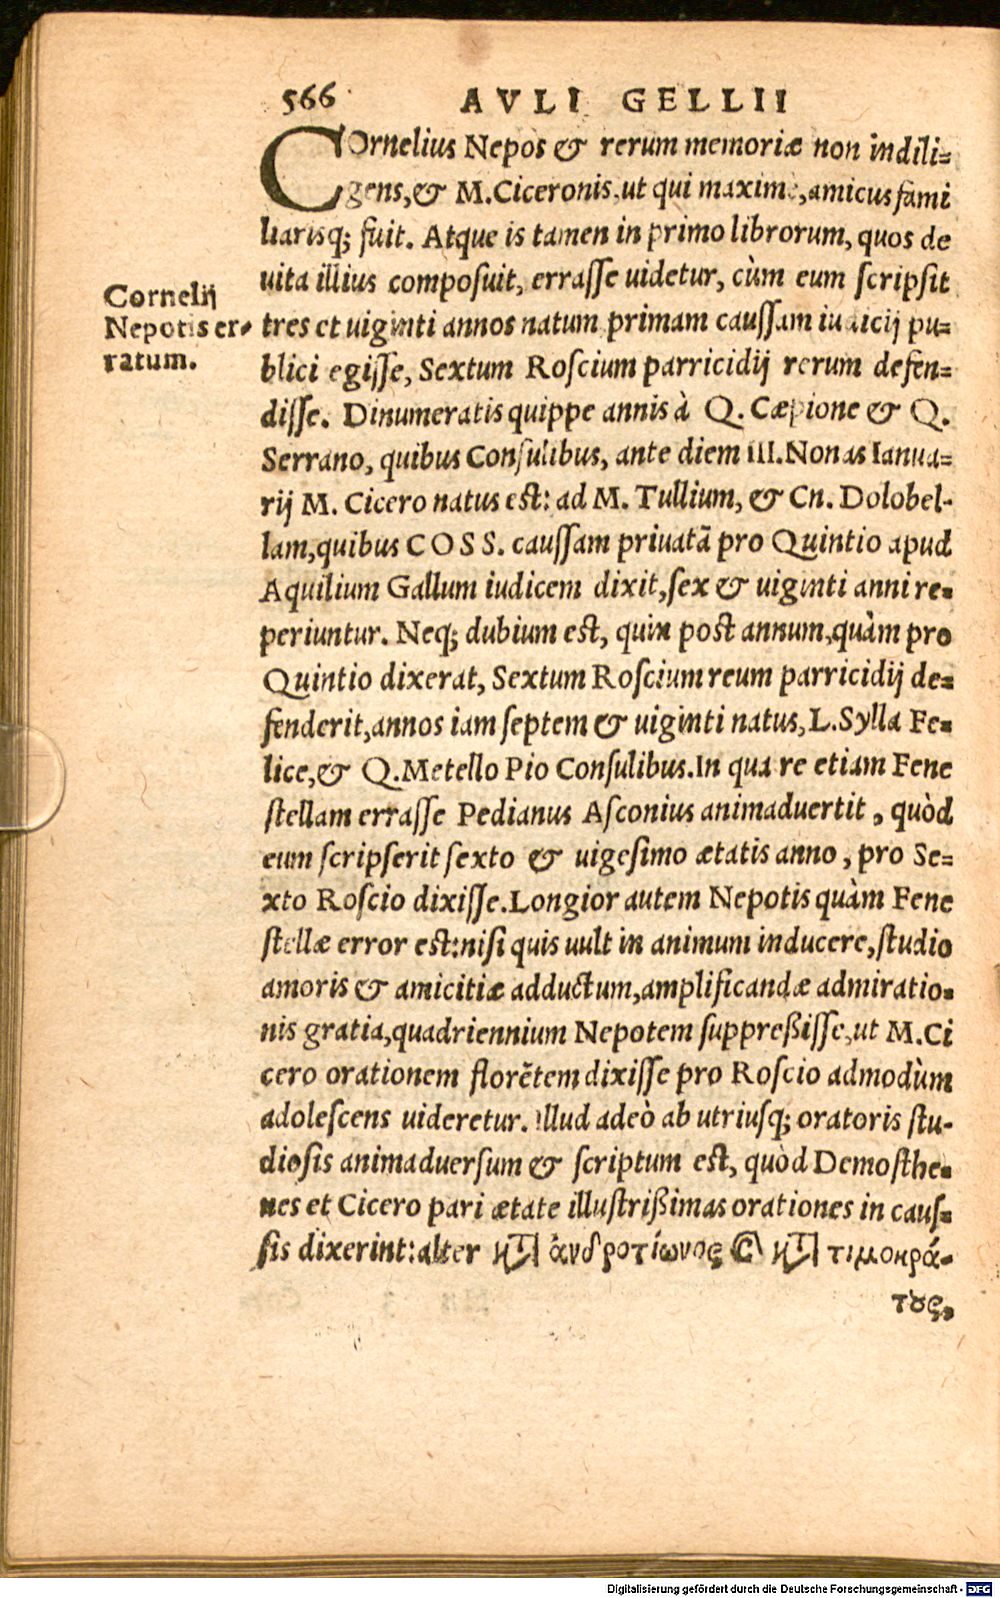 566 AVLI GELLII
COrnelius Nepos & rerum memoriæ non indili=
gens, & M. Ciceronis, ut qui maxime, amicus fami
liarisq; fuit. Atque is tamen in primo librorum, quos de
uita illius composuit, errasse uidetur, cùm eum scripsit
Cornelij
Nepotis er-
ratum.
tres et uiginti annos natum primam caussam iudicij pu=
blici egisse, Sextum Roscium parricidij rerum defen=
disse. Dinumeratis quippe annis à Q. Cæpione & Q.
Serrano, quibus Consulibus, ante diem III. Nonas Ianua=
rij M. Cicero natus est: ad M. Tullium, & Cn. Dolobel-
lam, quibus COSS. caussam priuatã pro Quintio apud
Aquilium Gallum iudicem dixit, sex & uiginti anni re-
periuntur. Neq; dubium est, quin post annum, quàm pro
Quintio dixerat, Sextum Roscium reum parricidij de=
fenderit, annos iam septem & uiginti natus, L. Sylla Fe-
lice, & Q. Metello Pio Consulibus. In qua re etiam Fene
stellam errasse Pedianus Asconius animaduertit, quòd
eum scripserit sexto & uigesimo ætatis anno, pro Se=
xto Roscio dixisse. Longior autem Nepotis quàm Fene
stellæ error est: nisi quis uult in animum inducere, studio
amoris & amicitiæ adductum, amplificandæ admiratio-
nis gratia, quadriennium Nepotem suppreßisse, ut M. Ci
cero orationem florẽtem dixisse pro Roscio admodùm
adolescens uideretur. Illud adeò ab utriusq; oratoris stu-
diosis animaduersum & scriptum est, quòd Demosthe-
nes et Cicero pari ætate illustrißimas orationes in caus-
sis dixerint: alter κατὰ ἀνδροτίωνος καὶ κατὰ τιμοκρά-
τους,
Digitalisierung gefördert durch die Deutsche Forschungsgemeinschaft - DFG